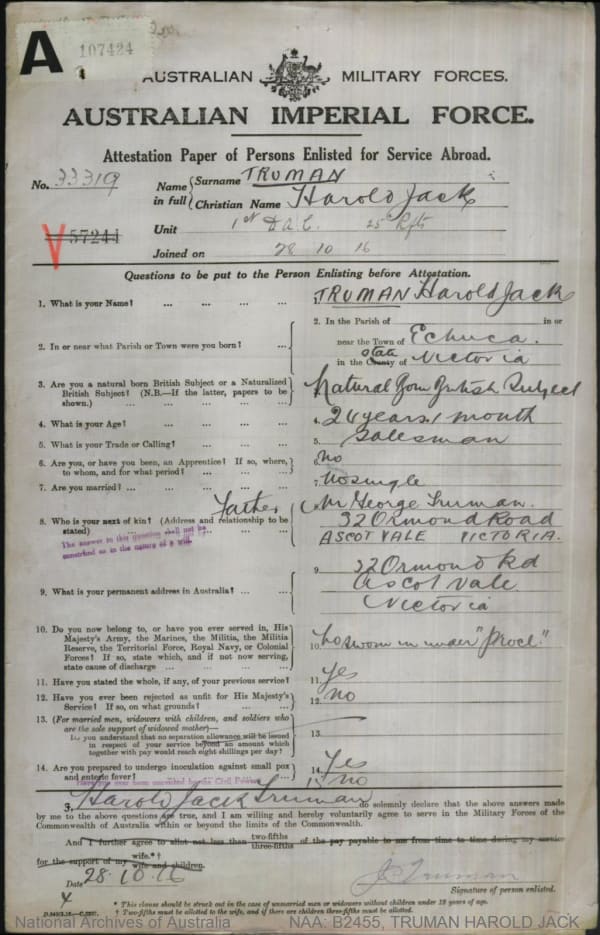 A
107424
AUSTRALIAN MILITARY FORCES.
AUSTRALIAN IMPERIAL FORCE.
Attestation Paper of Persons Enlisted for Service Abroad.
No. 33319
Name in full { Surname TRUMAN
Christian Name Harold Jack
Unit 1st D A C. 25 Rfts
57244
Joined on 28 10 16
Questions to be put to the Person Enlisting before Attestation.
1. What is your Name? ... ... ... ... TRUMAN Harold Jack
2. In or near what Parish or Town were you born? ... ...
2. In the Parish of in or
near the Town of Echuca.
in the County of state Victoria
3. Are you a natural born British Subject or a Naturalized
British Subject? (N.B.—If the latter, papers to be
shown.) ... ... ... ... ...
Natural Born British Subject
4. What is your Age? ... ... ... ... 4. 24 years 1 month
5. What is your Trade or Calling? ... ... ... 5. Salesman
6. Are you, or have you been, an Apprentice? If so, where,
to whom, and for what period? ... ... ...
6. no
7. Are you married? ... ... ... ... ... 7. No single
8. Who is your next of kin? (Address and relationship to be
stated) ... ... ... ... ...
The answer to this question shall not be
construed as in the nature of a will.
Father Mr George Truman.
32 Ormond Road
ASCOT VALE VICTORIA.
9. What is your permanent address in Australia? ... ...
9. 32 Ormond Rd
Ascot Vale
Victoria
10. Do you now belong to, or have you ever served in, His
Majesty's Army, the Marines, the Militia, the Militia
Reserve, the Territorial Force, Royal Navy, or Colonial
Forces? If so, state which, and if not now serving,
state cause of discharge ... ... ... ...
10. No sworn in under "Procl."
11. Have you stated the whole, if any, of your previous service? 11. yes
12. Have you ever been rejected as unfit for His Majesty's
Service? If so, on what grounds? ... ... ...
12. no
13. (For married men, widowers with children, and soldiers who
are the sole support of widowed mother)—
Do you understand that no separation allowance will be issued
in respect of your service beyond an amount which
together with pay would reach eight shillings per day?
13.
14. Are you prepared to undergo inoculation against small pox
and enteric fever? ... ... ...
14. Yes
Have you ever been convicted by the Civil Power?
15 no
I, Harold Jack Truman do solemnly declare that the above answers made
by me to the above questions are true, and I am willing and hereby voluntarily agree to serve in the Military Forces of the
Commonwealth of Australia within or beyond the limits of the Commonwealth.
And I further agree to allot not less than two-fifths three-fifths of the pay payable to me from time to time during my service
for the support of my wife.*† wife and children.
Date 28.10.16
Truman
Signature of person enlisted.
4
* This clause should be struck out in the case of unmarried men or widowers without children under 18 years of age.
† Two-fifths must be allotted to the wife, and if there are children three-fifths must be allotted.
National Archives of Australia NAA: B2455, TRUMAN HAROLD JACK